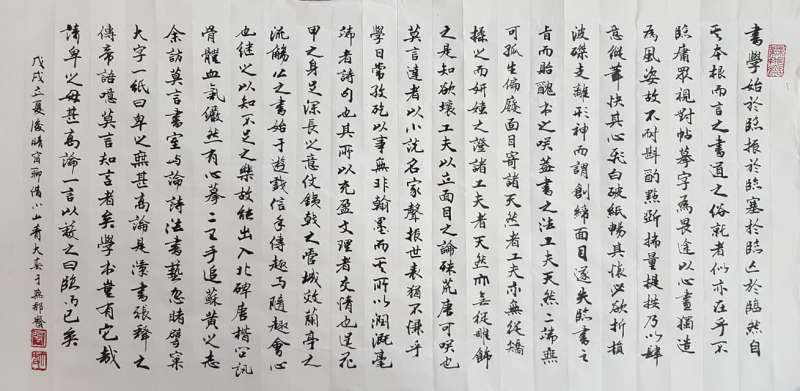 書學始於臨振於臨塞於臨亡於臨然自
其本根而言之書道之俗就者似亦在乎不
臨庸眾視對帖摹字為畏途以心畫獨造
為風姿故不耐斟酌點斷揣量提挨乃以肆
意縱筆快其心彩白破紙暢其懷必欲折損
波磔支離形神而謂創締面目遂失臨書之
旨而貽醜書之哂蓋書之法工夫天然二端無
可孤生偏廢面目寄諸天然者工夫亦無從矯
揉之而妍媸之證諸工夫者天然亦無從雕飾
之是知欲壞工夫以立面目之論殊荒唐可哂也
莫言達者以小說名家聲振世表猶不懈乎
學日常孜矻以事無非翰墨而其所以潤溉毫
端者詩句也其所以充盈文理者交情也從花
甲之身足深長之意仗鐵戟之管城效蘭亭之
流觴公之書始于遊戲信手傳趣與隨趣會心
也繼之以知不足之樂故能出入北碑唐楷窮訊
骨體血氣儼然有心摹二王手追蘇黃之志
余訪莫言書室與論詩法書藝忽睹壁案
大字一紙曰卑之無甚高論是漢書張釋之
傳帝語噫莫言知言者矣學書豈有它哉
請卑之毋甚高論一言以蔽之曰臨而已矣
戊戌立夏後晴窗聊備小山看大春于無都齋